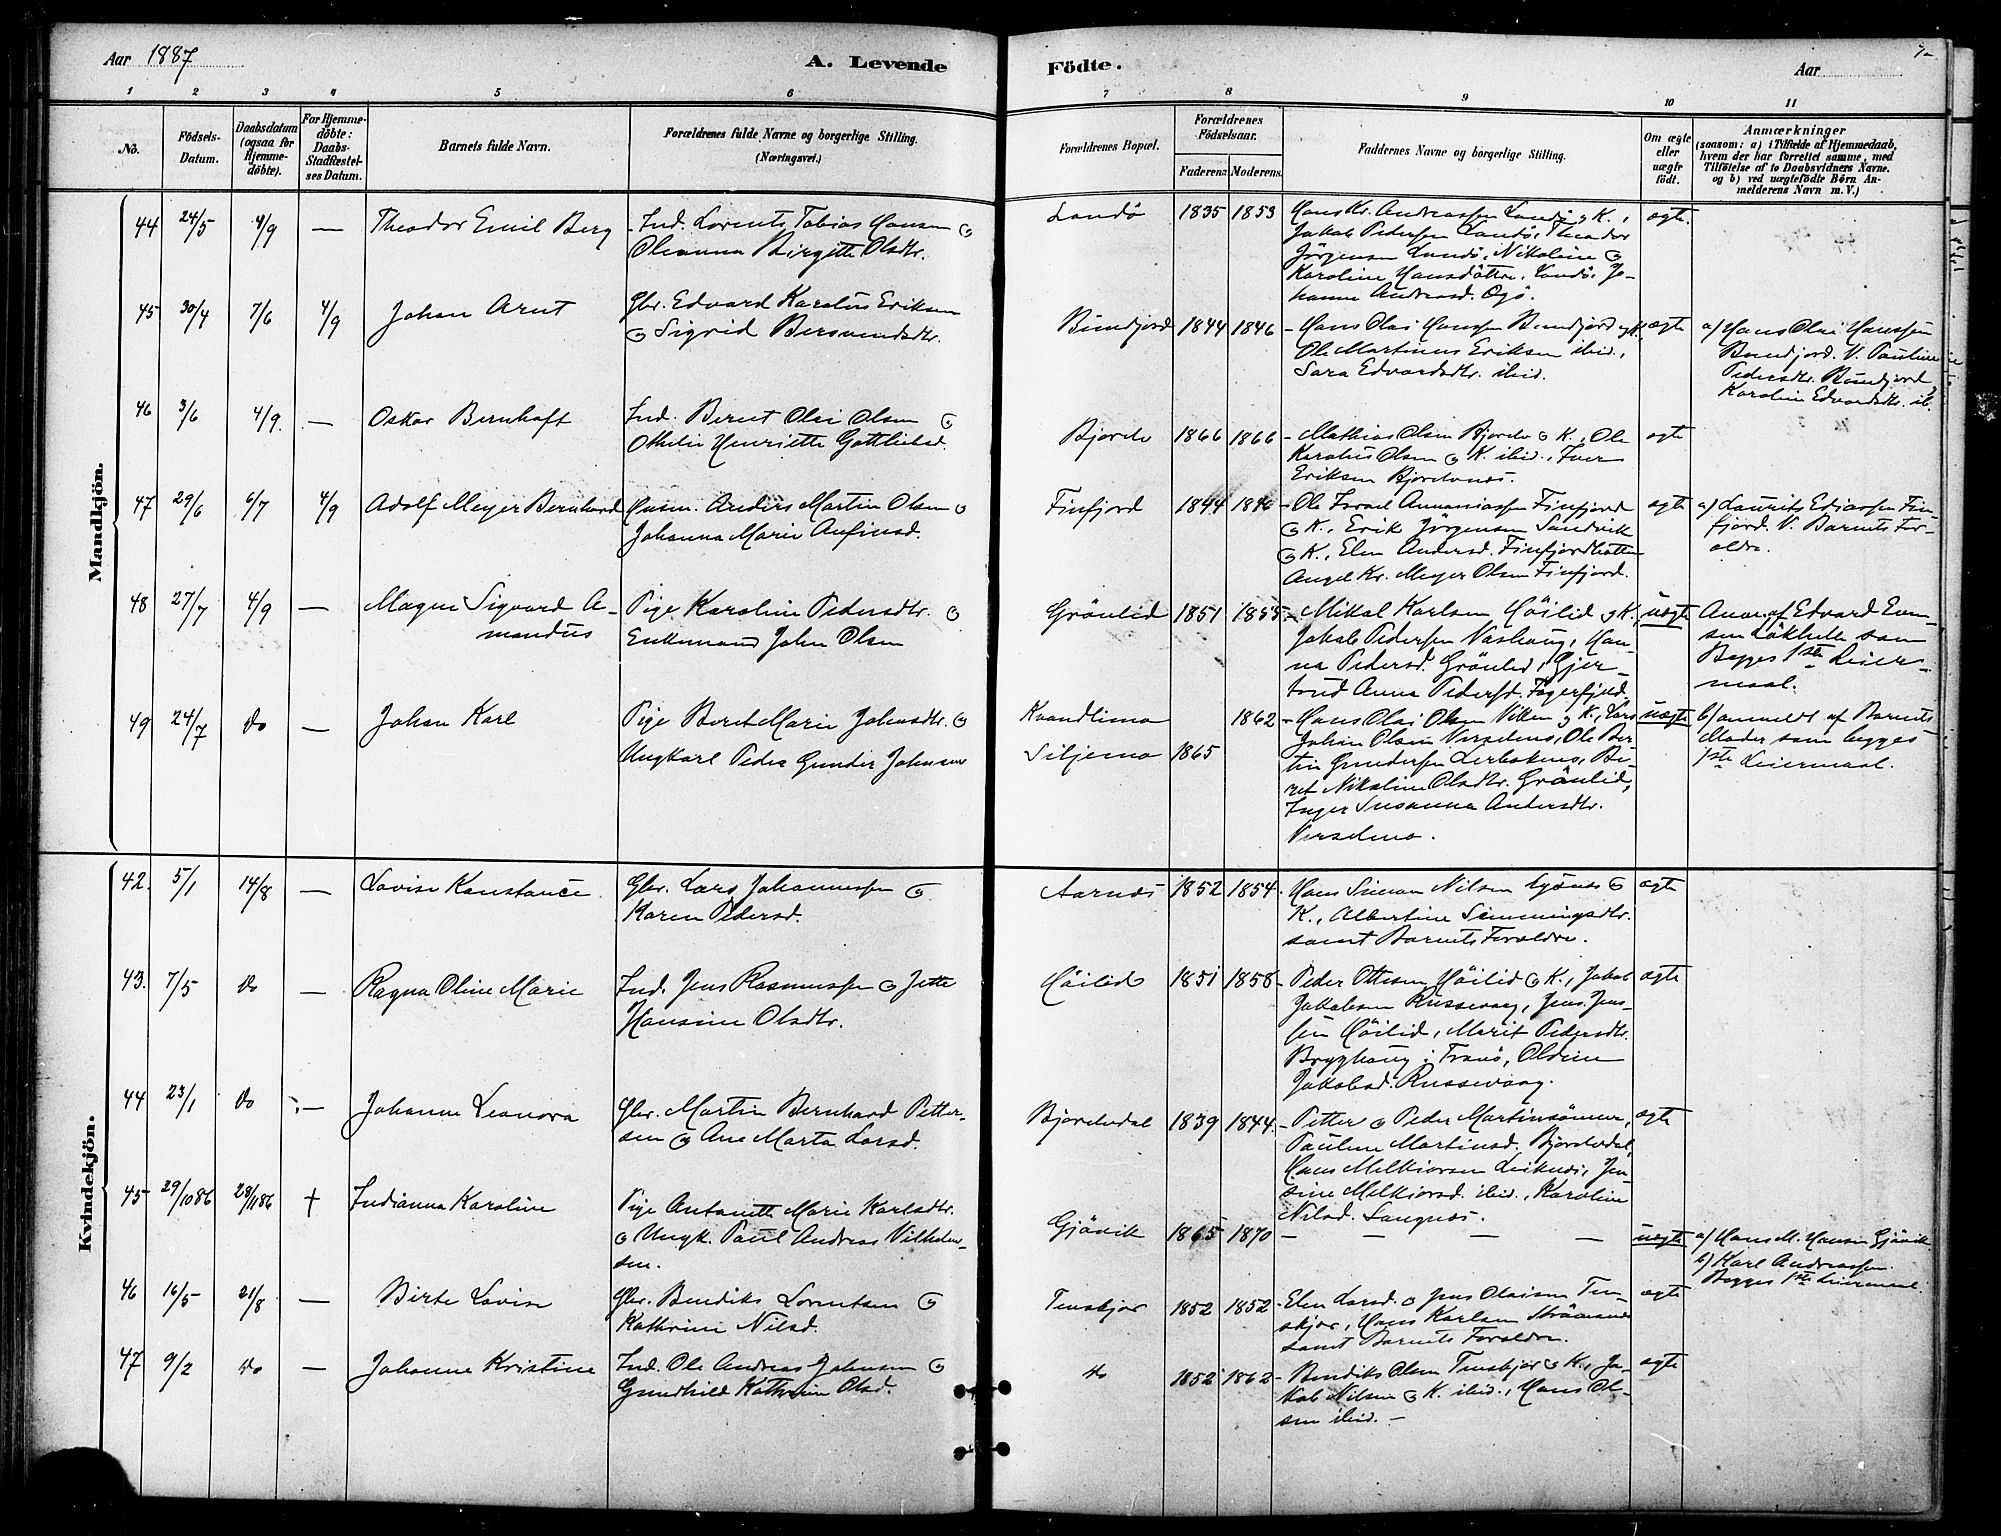 Aar 1887
A. Levende
Födte.
Aar
1 2 3 4 5 6 7 8 9 10 11
No.
Födsels-
Datum.
Daabsdatum
(ogsaa for
Hjemme-
døbte).
For Hjemme-
døbte:
Daabs-
Stadfæstel-
ses Datum.
Barnets fulde Navn.
Forældrenes fulde Navne og borgerlige Stilling.
(Næringsvei.)
Forældrenes Bopæl.
Forældrenes
Födselsaar.
Faderens Moderens.
Faddernes Navne og borgerlige Stilling.
Om ægte
eller
uægte
født.
Anmærkninger
(saasom: a) i Tilfælde af Hjemmedaab,
hvem der har forrettet samme, med
Tilföielse af to Daabsvidners Navne.
og b) ved uægtefödte Børn An-
melderens Navn m. V.)
Mandkjön.
44 24/5 4/9 — Theodor Emil Berg
Ind. Lorents Tobias Hansen &
Oleanna Birgitte Olsdtr.
Landö 1835 1853
Hans Kr. Andreassen Landö & K.,
Jakob Pedersen Landö, Theodor
Jörgensen Landö, Nikoline &
Karoline Hansdöttre Landö, Jo-
hanna Andreasd. Ogö.
ægte.
45 30/4 7/6 4/9 Johan Arnt
Gbr. Edvard Karolus Eriksen
& Sigrid Bersvendsdtr.
Bundjord 1844 1846
Hans Olai Hanssen Bundjord & K.,
Ole Martinus Eriksen ibid.,
Sara Edvardsdtr. ibid.
ægte
a) Hans Olai Hanssen
Bundjord. V. Pauline
Pedersdtr. Bundjord,
Karoline Edvardsdtr. ib.
46 3/6 4/9. — Oskar Bernhoft
Ind. Bernt Olai Olsen &
Othelie Henriette Gottliebsd.
Bjorelv 1866 1866
Mathias Olsen Bjorelv & K., Ole
Karolius Olsen & K. ibid., Iver
Eriksen Bjorelvnes.
ægte
47 29/6 6/7 4/9 Adolf Meyer Bernhard
Husm. Anders Martin Olsen &
Johanna Marie Anfinsd.
Finfjord 1844 1846
Ole Israel Annaniassen Finfjord
& K., Erik Jörgensen Sandvik
& K., Elen Andersd. Finfjordbotten
Angel Kr. Meyer Olsen Finfjord.
ægte
a) Laurits Ediassen Fin-
fjord. V. Barnets For-
ældre.
48 27/7 4/9 — Magne Sigvard A-
mandus
Pige Karoline Pedersdtr. &
Enkemand John Olsen
Grönlid 1851 1855
Mikal Karlsen Höilid & K.,
Jakob Pedersen Vashaug, Han-
na Pedersd. Grönlid, Gjer-
trud Anna Pedersd. Fagerfjeld.
uægte
Anm. af Edvard Even-
sen Lökhelle som
Begges 1ste Leier-
maal.
49 24/7 do — Johan Karl
Pige Beret Marie Johnsdtr. &
Ungkarl Peder Gunder Johnsen
Kvandlimo 1862
Siljemo 1865
Hans Olai Olsen Vikken & K., Lars
Johan Olsen Nerselnes, Ole Ber-
tin Gundersen Lerbakmo, Be-
ret Nikoline Olsdtr. Grönlid,
Inger Susanna Andersdtr.
Nerselmo.
uægte
b) anmeldt af Barnets
Moder som begges
1ste Leiermaal.
Kvindekjön.
42. 5/1 14/8 — Lovise Konstance
Gbr. Lars Johannessen &
Karen Pedersd.
Aarnes 1852 1854
Hans Simon Nilsen Gjönes &
K., Albertine Simmingsdtr.
samt Barnets Forældre.
ægte
43. 7/5 do — Ragna Oline Marie
Ind. Jens Rasmussen & Jette
Hansine Olsdtr.
Höilid 1851 1858
Peder Ottesen Höilid & K., Jakob
Jakobsen Russevaag, Jens Jens-
sen Höilid, Marit Pedersdtr.
Brygghaug i Tranö, Oldine
Jakobsd. Russevaag.
ægte
44 23/1 do — Johanne Leonora
Gbr. Martin Bernhard Petter-
sen & Ane Marta Larsd.
Bjorelvdal 1839 1844.
Petter & Peder Martinsönner,
Pauline Martinsd. Bjorelvdal,
Hans Melkiorsen Leiknes, Jen-
sine Melkiorsd. ibid., Karoline
Nilsd. Langnes.
ægte
45 29/10 86 28/11 86 † Indianna Karoline
Pige Antonette Marie Karlsdtr.
& Ungk. Paul Andreas Vilhelm-
sen.
Gjövik 1865 1870 — — — —
uægte
a) Hans M. Hansen Gjövik
b) Karl Andreassen.
Begges 1ste Leiermaal.
46 16/5 21/8 — Birte Lovise
Gbr. Bendiks Lorentsen &
Kathrine Nilsd.
Tenskjær 1852 1852
Elen Larsd. & Jens Olaisen Ten-
skjær, Hans Karlsen Strömsnes
samt Barnets Forældre.
ægte
47 9/2 do — Johanne Kristine
Ind. Ole Andreas Johnsen &
Gundhild Kathrine Olsd.
do 1852 1862
Bendiks Olsen Tenskjær & K., Ja-
kob Nilsen & K. ibid., Hans Ol-
sen ibid. —
ægte